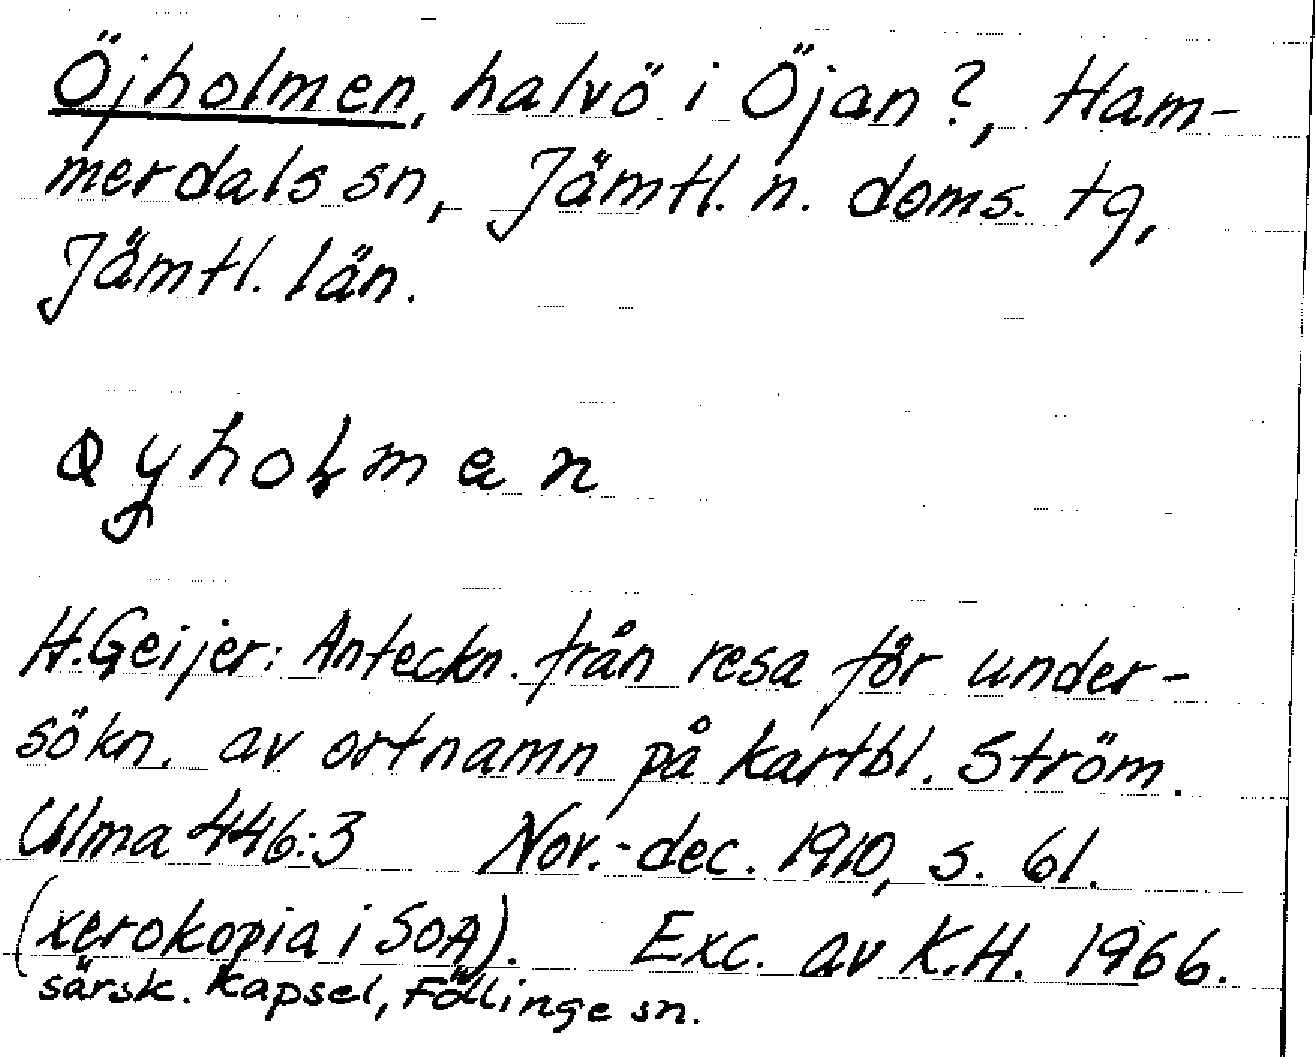 Öjholmen, halvö i Öjan?, Ham-
merdals sn, Jämtl. n. doms. tg,
Jämtl. län.
H. Geijer: Anteckn. från resa för under-
sökn. av ortnamn på kartbl. Ström.
Ulma 446:3 Nov.-dec. 1910, s. 61.
(xerokopia i SOA). Exc. av K.H. 1966.
särsk. kapsel, Föllinge sn.